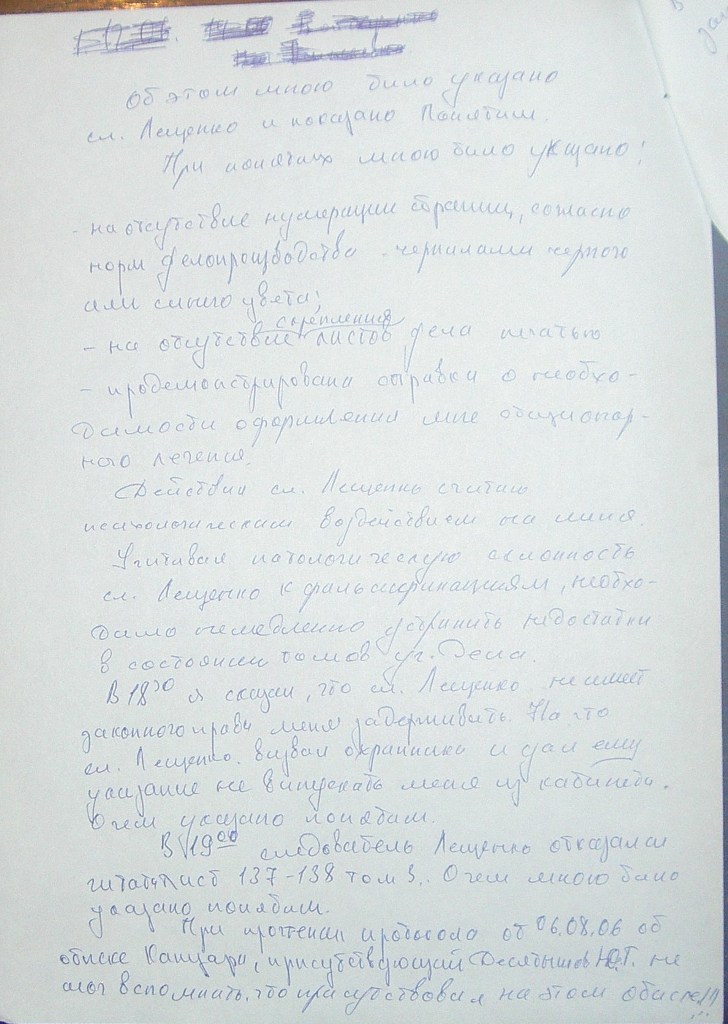 Об этом мною было указано
сл. Лещенко и показано Понятым.
При понятых мною было указано!
- на отсутствие нумерации страниц, согласно
норм делопроизводства - чернилами черного
или синего цвета;
скрепления
- на отсутствие листов дела печатью
- продемонстрирована справка о необхо-
димости оформления мне стационар-
ного лечения.
Действия сл. Лещенко считаю
психологическим воздействием на меня.
Учитывая патологическую склонность
сл. Лещенко к фальсификациям, необхо-
димо немедленно устранить недостатки
в состоянии томов уг. Дела.
В 18³⁰ я сказал, что сл. Лещенко не имеет
законного права меня задерживать. На что
сл. Лещенко вызвал охранника и дал ему
указание не выпускать меня из кабинета.
О чем указано понятым.
В 19⁰⁰ следователь Лещенко отказался
читать лист 137-138 том 3. О чем мною было
указано понятым.
При прочтении протокола от 06.08.06 об
обыске присутствующий Ю.Г. не
мог вспомнить, что присутствовал на этом обыске!!!